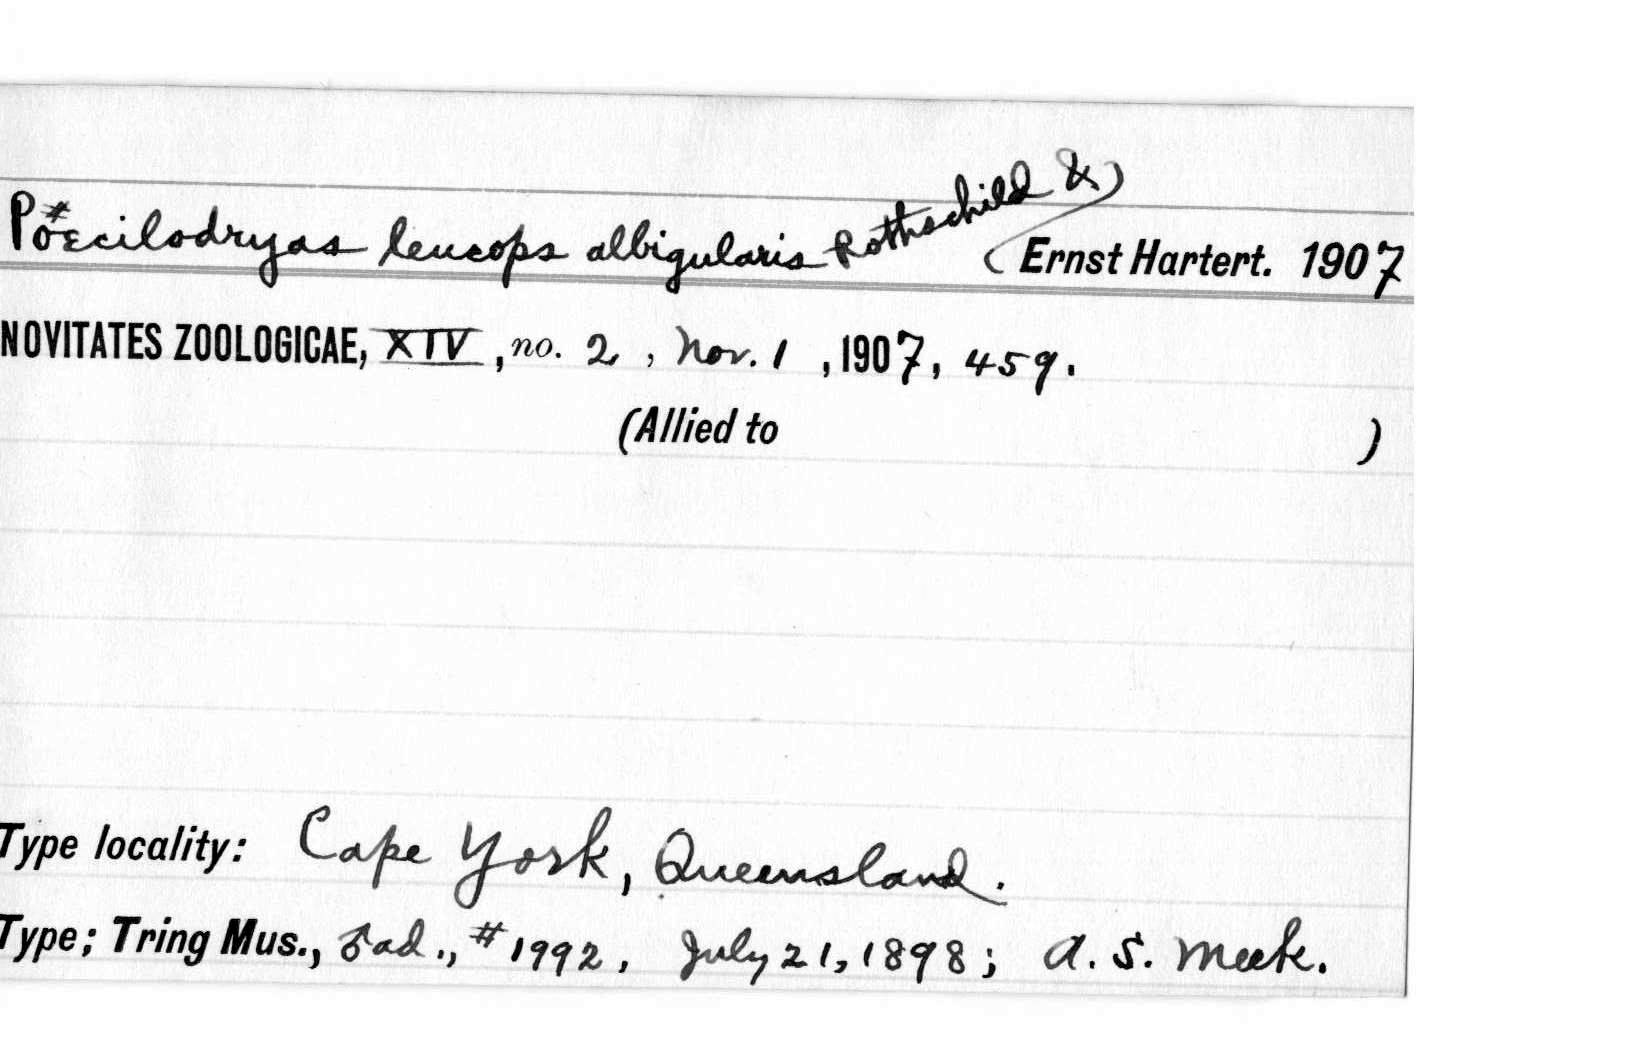 Poecilodryas leucops albigularis Rothschild & (Ernst Hartert. 1907
NOVITATES ZOOLOGICAE, XIV, no. 2, Nov. 1, 1907, 459.
(Allied to )
Type locality: Cape York, Queensland.
Type; Tring Mus., ♂ad., #1992, July 21, 1898; A. S. Meek.